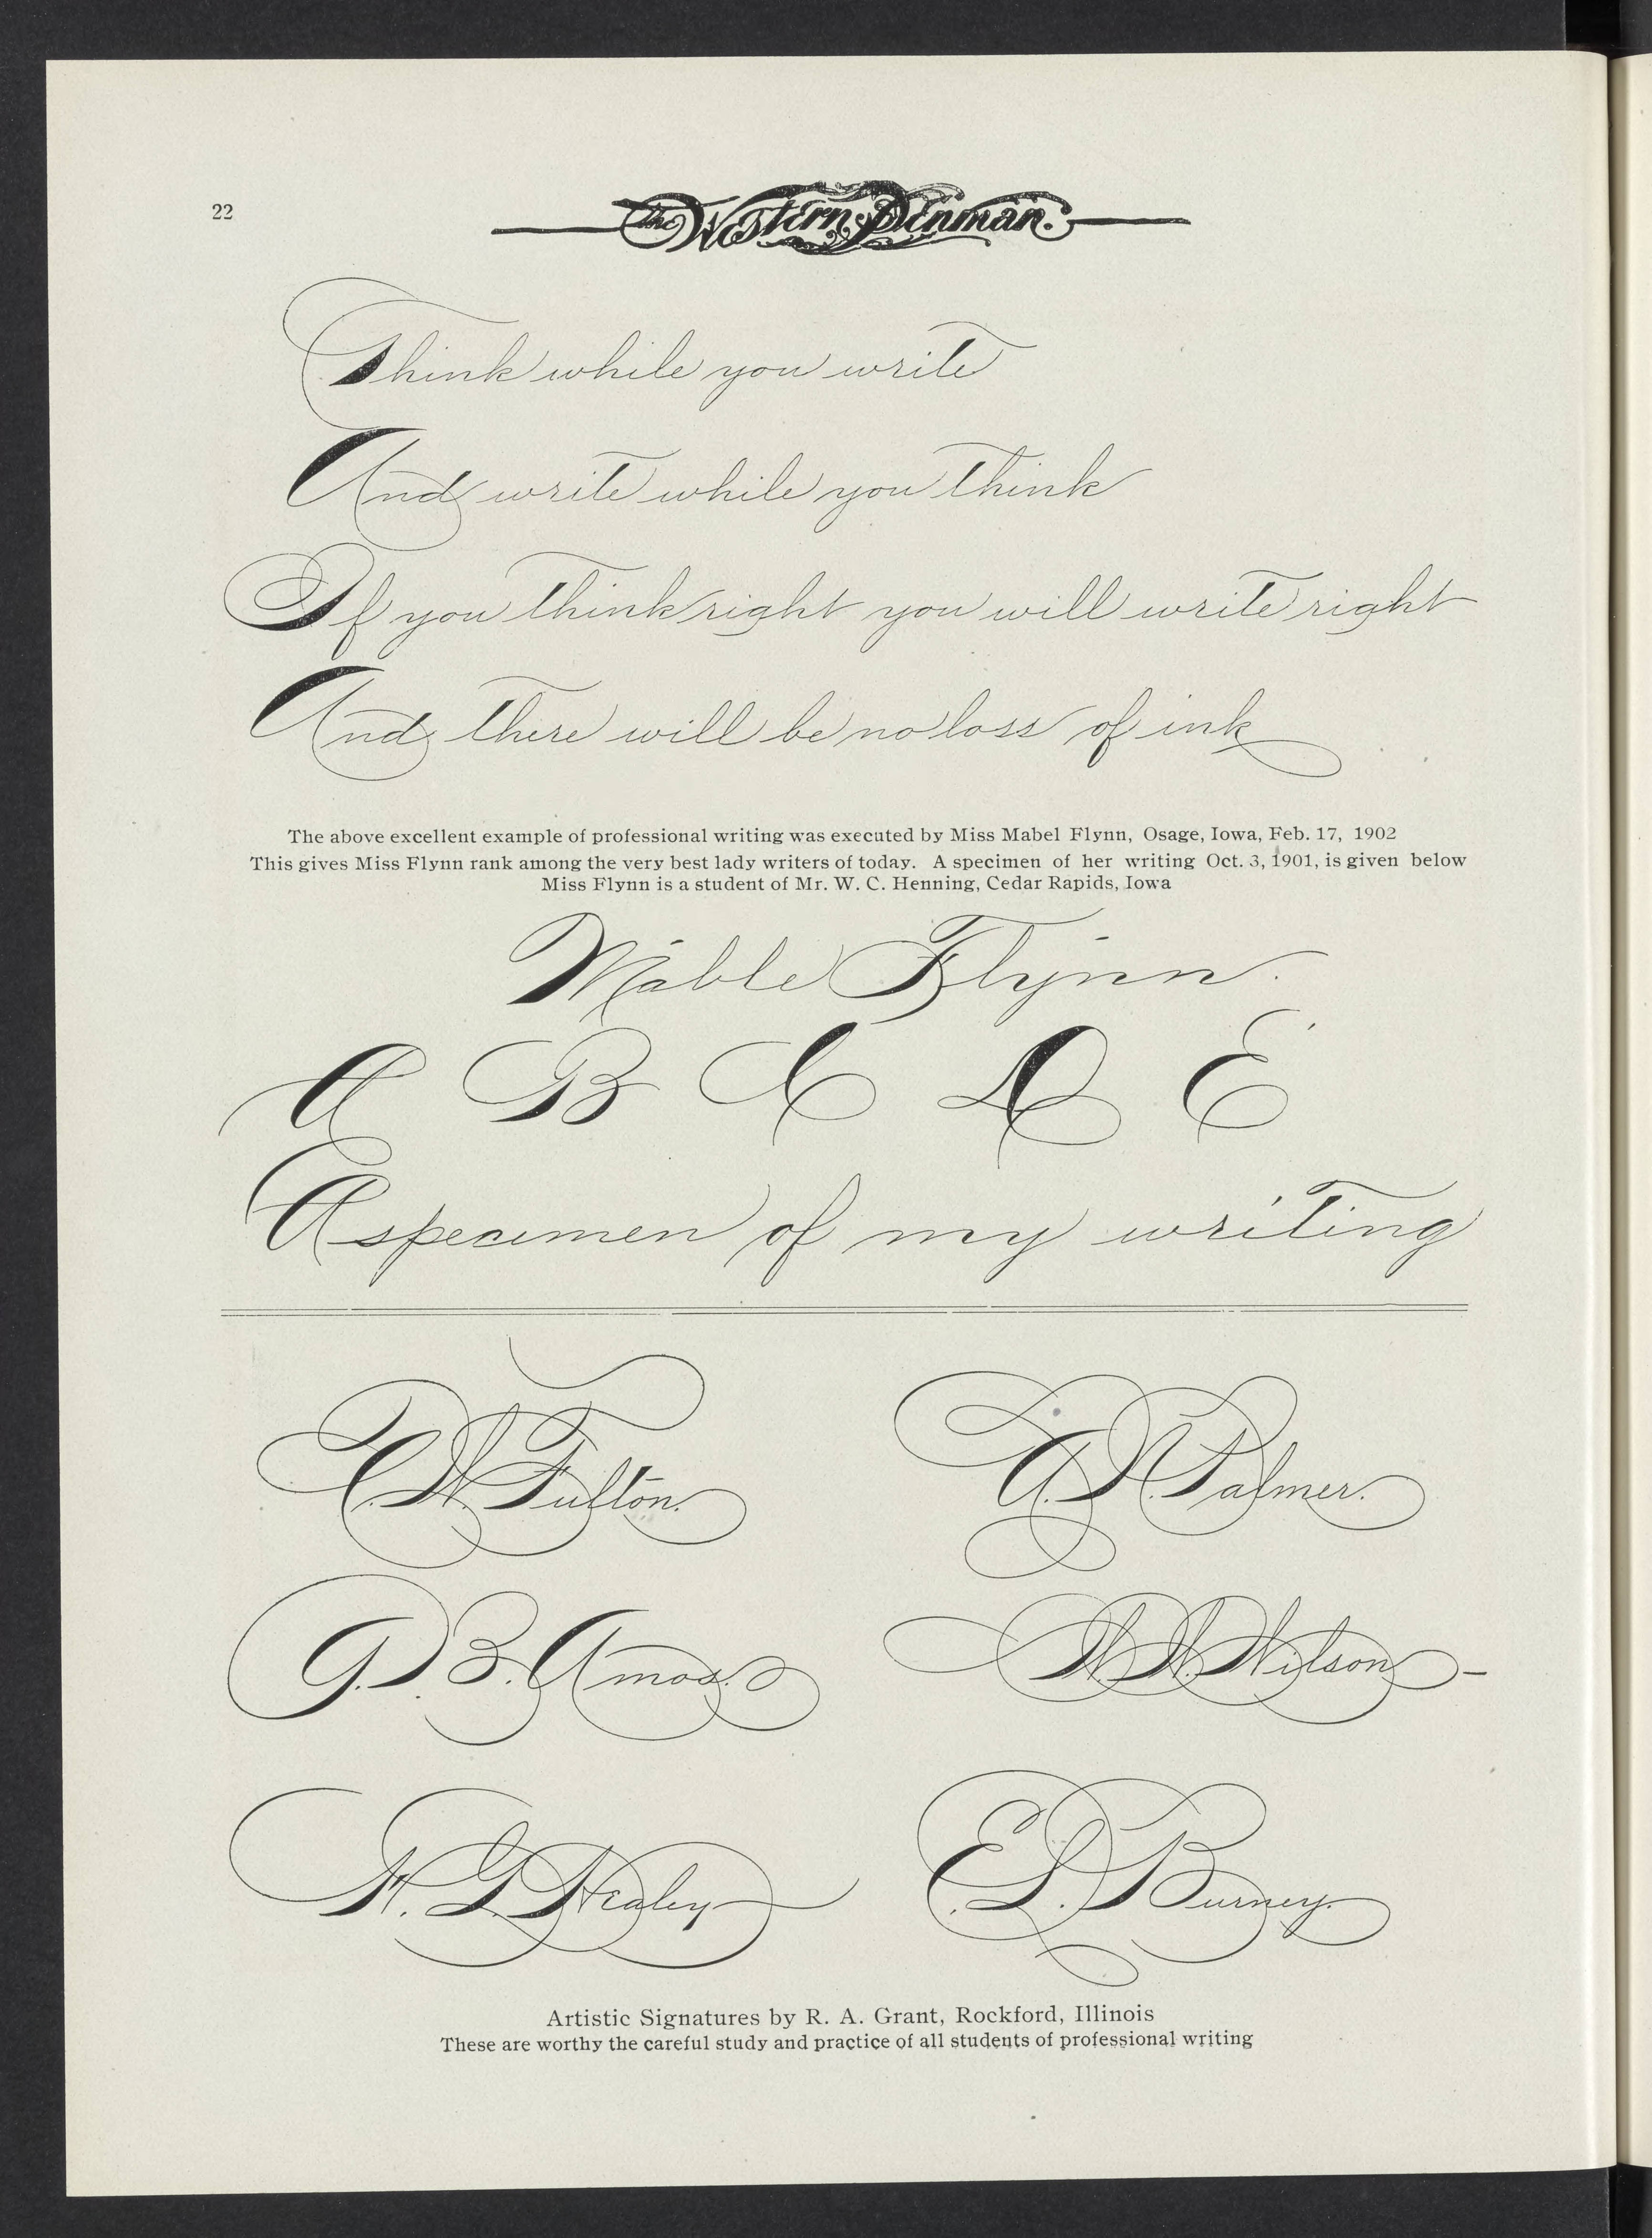 22
The Western Penman.
Think while you write
And write while you think
If you think right you will write right
And there will be no loss of ink
The above excellent example of professional writing was executed by Miss Mabel Flynn, Osage, Iowa, Feb. 17, 1902
This gives Miss Flynn rank among the very best lady writers of today. A specimen of her writing Oct. 3, 1901, is given below
Miss Flynn is a student of Mr. W. C. Henning, Cedar Rapids, Iowa
Mable Flynn.
A B C D E
A specimen of my writing
C. W. Fulton.
A. N. Palmer.
G. B. Amos.
W. W. Wilson
H. G. Healey
E. L. Burney.
Artistic Signatures by R. A. Grant, Rockford, Illinois
These are worthy the careful study and practice of all students of professional writing